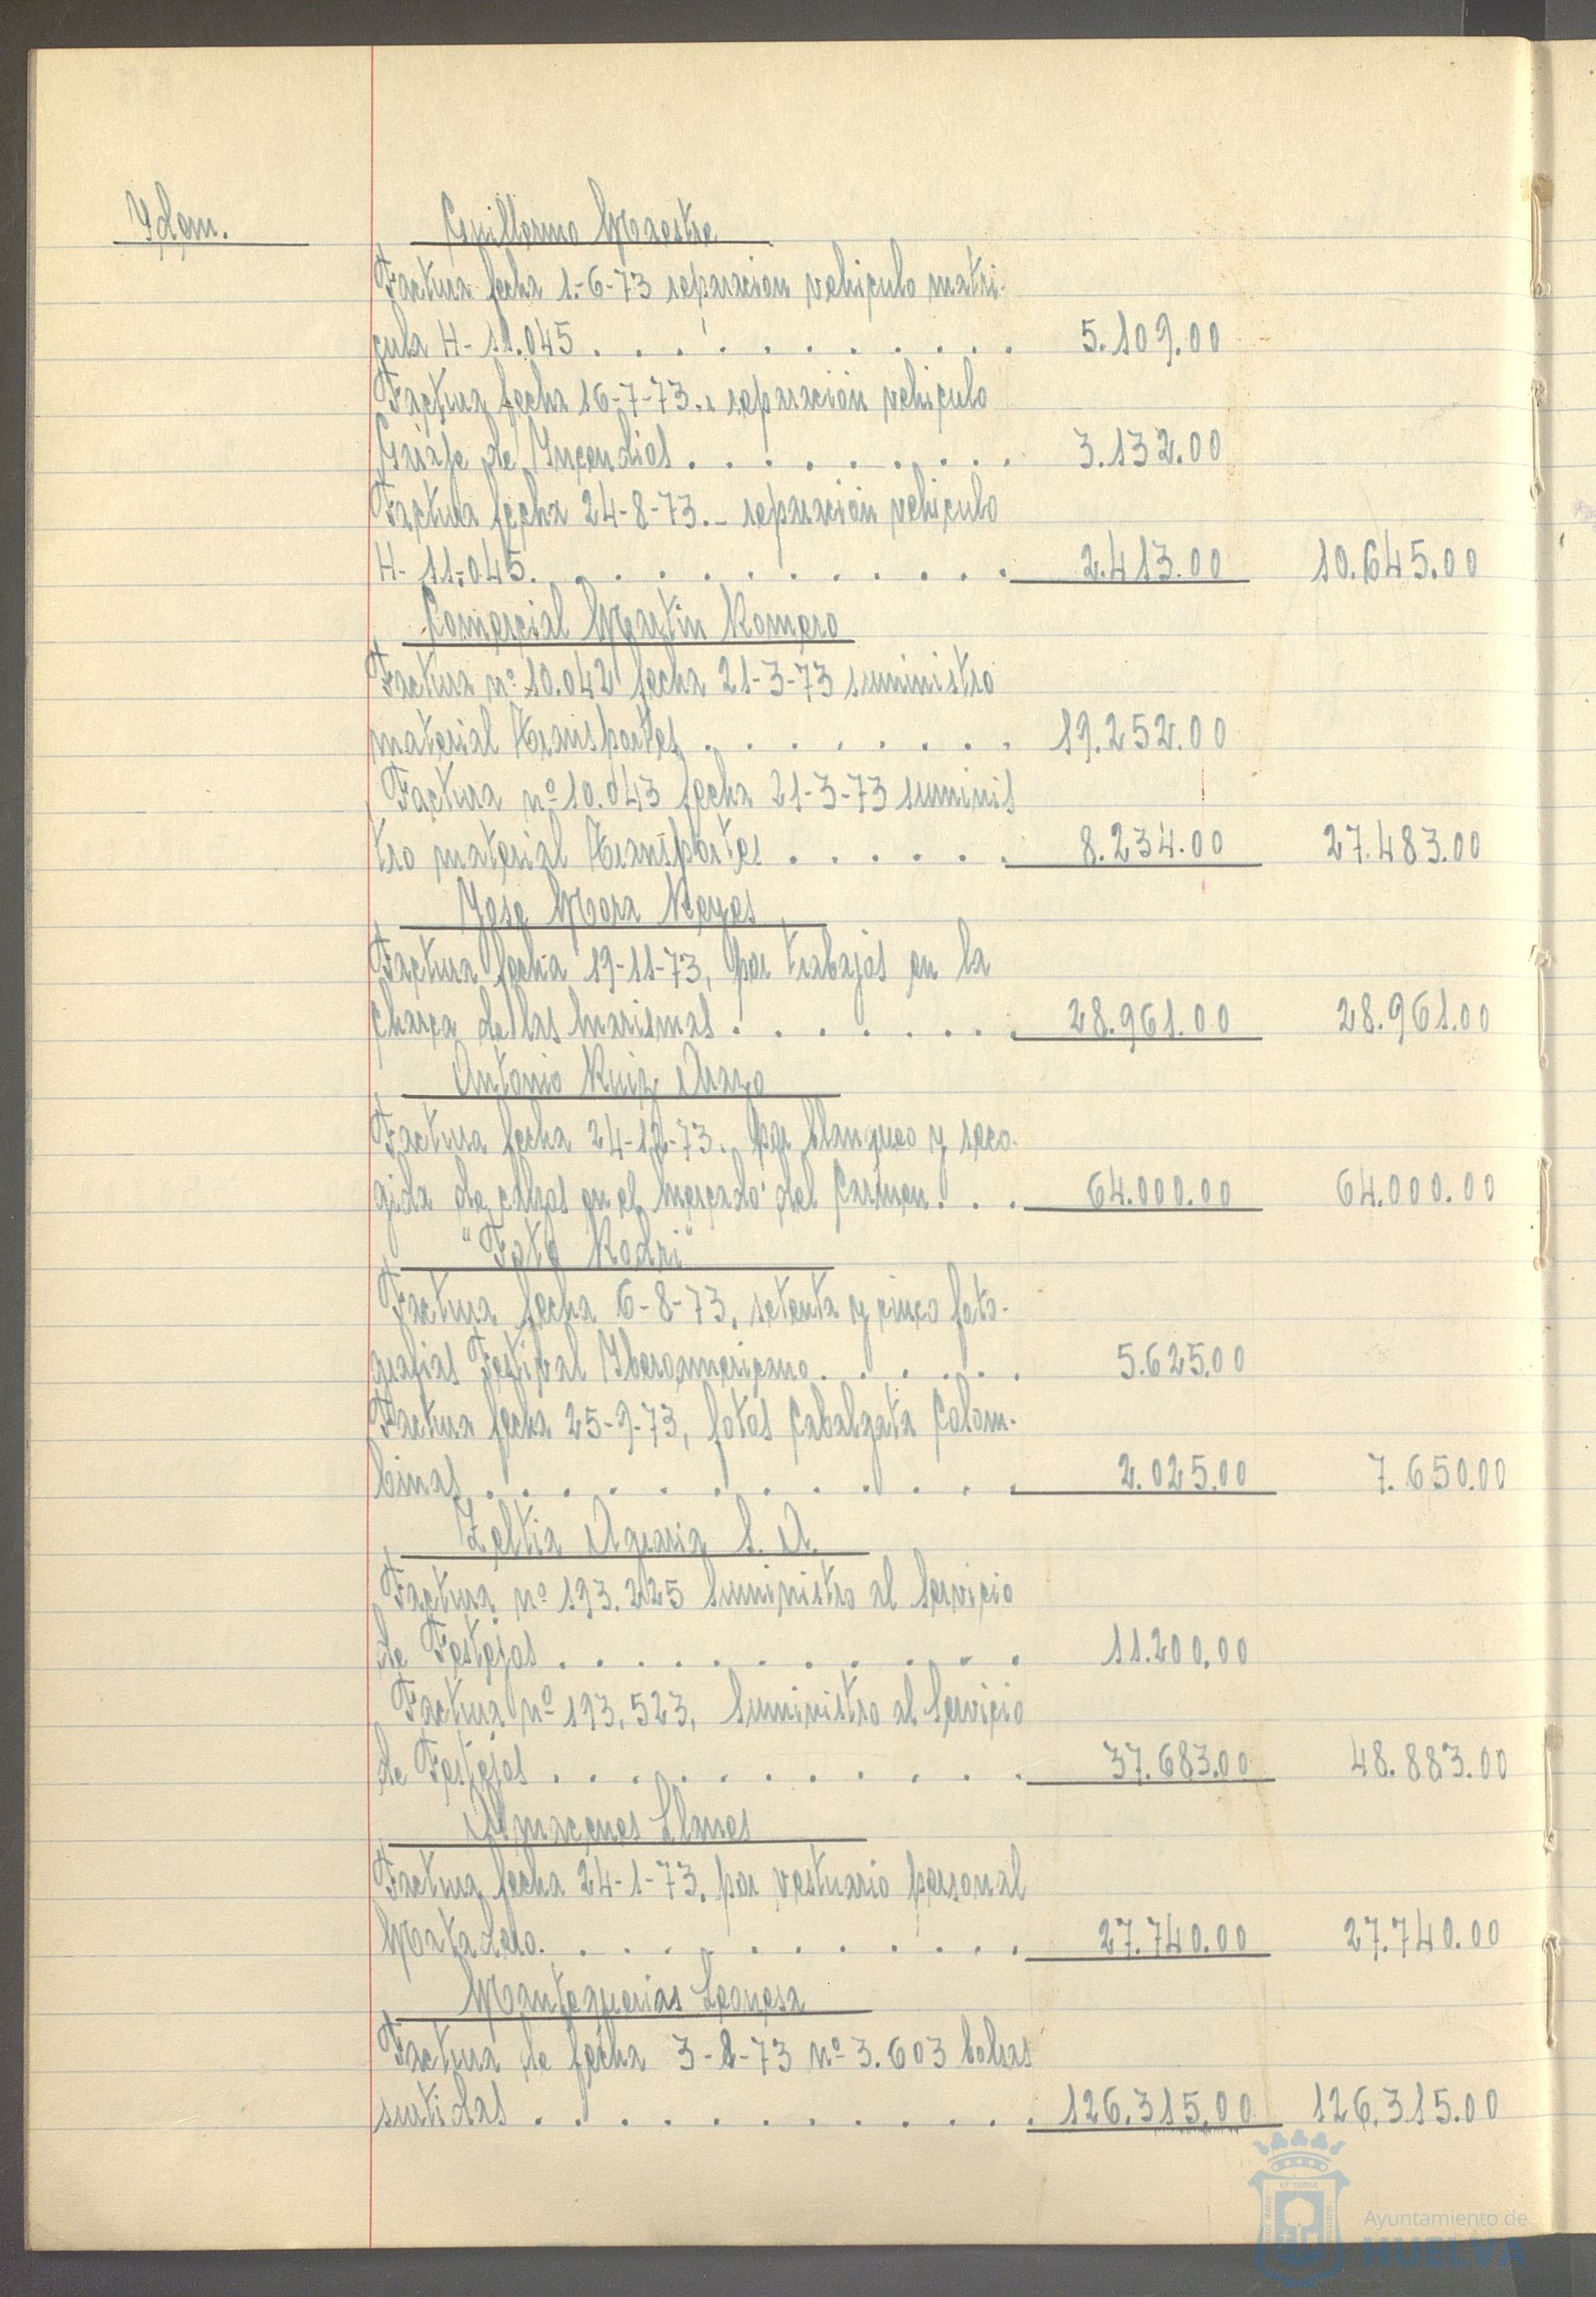 Ydem. Guillermo Maestre
Factura fecha 1-6-73 reparacion vehiculo matri-
cula H-11.045 . . . . . . . . . . . 5.109.00
Factura fecha 16-7-73.. reparación vehiculo
Parque de Yncendios . . . . . . . . . 3.132.00
Factura fecha 24-8-73.- reparación vehiculo
H-11.045. . . . . . . . . . . . 2.413.00 10.645.00
Comercial Martin Romero
Factura nº 10.042 fecha 21-3-73 suministro
material Transportes . . . . . . . . 19.252.00
Factura nº 10.043 fecha 21-3-73 suminis
tro material Transportes . . . . . . 8.234.00 27.483.00
Jose Mora Reyes
Factura fecha 19-11-73, por trabajos en la
charca de las marismas . . . . . . . 28.961.00 28.961.00
Antonio Ruiz
Factura fecha 24-12-73. por blanqueo y reco-
gida de en el mercado del Carmen. . . 64.000.00 64.000.00
"Foto Rodri"
Factura fecha 6-8-73, setenta y cinco foto-
grafias Festival Yberoamericano. . . . . . 5.625.00
Factura fecha 25-9-73, fotos Cabalgata Colom-
binas . . . . . . . . . . . . 2.025.00 7.650.00
Zeltia Agraria S.A.
Factura nº 193.225 suministro al Servicio
de Festejos . . . . . . . . . . . 11.200,00
Factura nº 193,523, suministro al Servicio
de Festejos . . . . . . . . . . . 37.683.00 48.883.00
Almacenes Llanes
Factura fecha 24-1-73. por vestuario personal
Matadero. . . . . . . . . . . . 27.740.00 27.740.00
Mantequerias Leonesa
Factura de fecha 3-2-73 nº 3.603 bolsas
surtidas . . . . . . . . . . . . 126.315.00 126.315.00
Ayuntamiento de
HUELVA